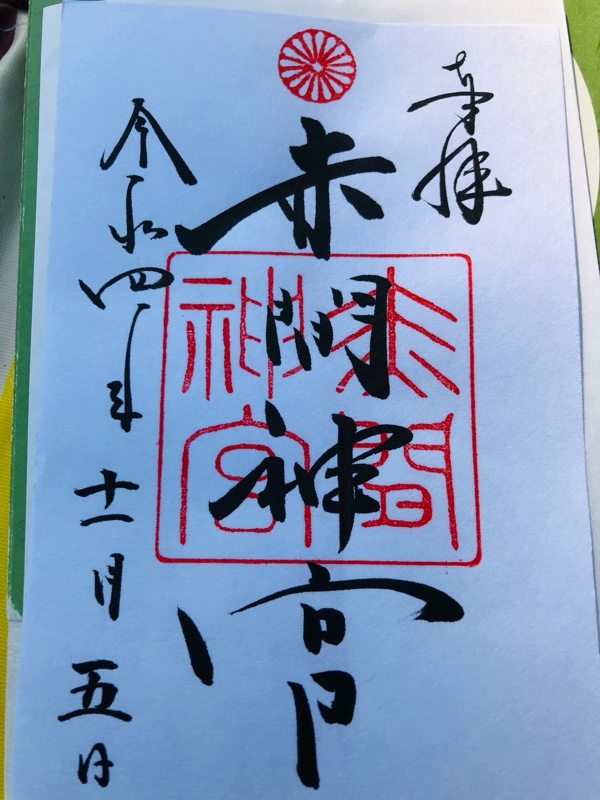 奉拝
赤間神宮
赤間神宮
令和四年十一月五日